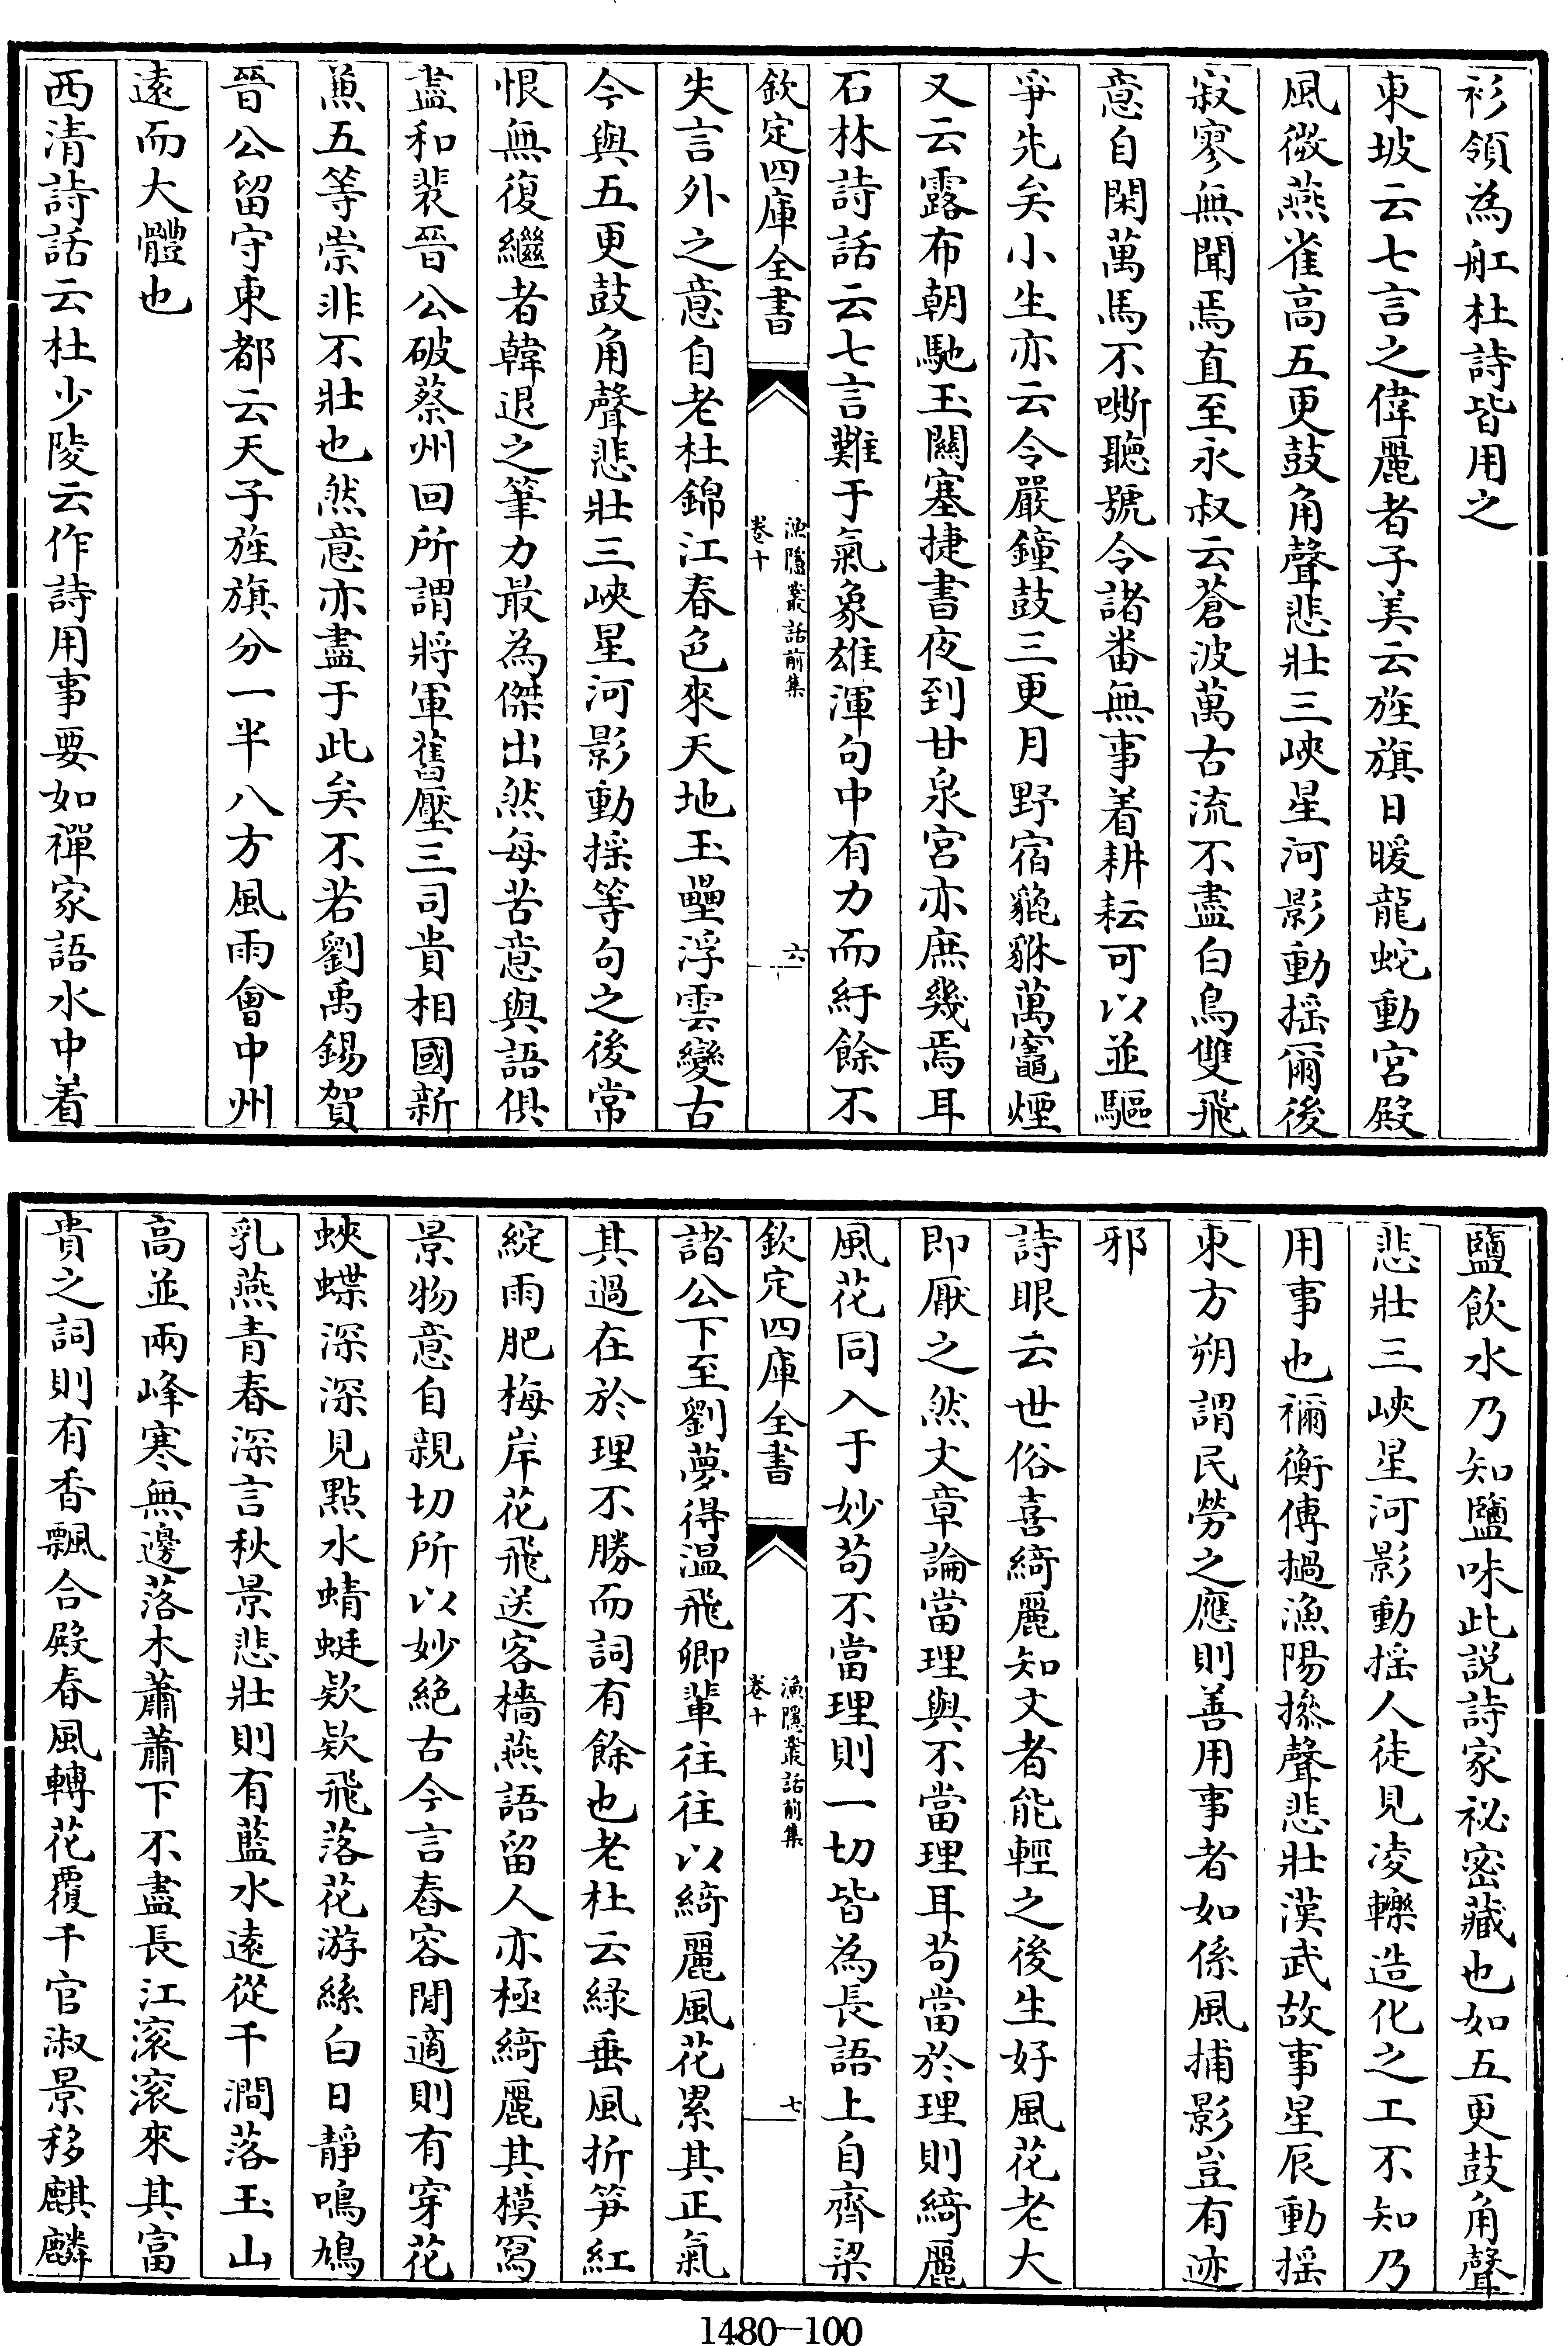 衫領為舡杜詩皆用之
東坡云七言之偉麗者子美云旌旗日暖龍蛇動宮殿
風微燕雀高五更鼓角聲悲壯三峽星河影動揺爾後
寂寥無聞焉直至永叔云蒼波萬古流不盡白鳥雙飛
意自閑萬馬不嘶聽號令諸番無事着耕耘可以並驅
爭先矣小生亦云令嚴鐘鼓三更月野宿貔貅萬竈煙
又云露布朝馳玉關塞捷書夜到甘泉宮亦庶幾焉耳
石林詩話云七言難于氣象雄渾句中有力而紆餘不
欽定四庫全書
漁隱叢話前集
卷十
六
失言外之意自老杜錦江春色來天地玉壘浮雲變古
今與五更鼓角聲悲壯三峽星河影動揺等句之後常
恨無復繼者韓退之筆力最為傑出然每苦意與語俱
盡和裴晉公破蔡州回所謂將軍舊壓三司貴相國新
兼五等崇非不壯也然意亦盡于此矣不若劉禹錫賀
晉公留守東都云天子旌旗分一半八方風雨會中州
遠而大體也
西清詩話云杜少陵云作詩用事要如禪家語水中着
鹽飲水乃知鹽味此説詩家祕密藏也如五更鼓角聲
悲壯三峽星河影動揺人徒見凌轢造化之工不知乃
用事也禰衡傳撾漁陽摻聲悲壯漢武故事星辰動揺
東方朔謂民勞之應則善用事者如係風捕影豈有迹
邪
詩眼云世俗喜綺麗知文者能輕之後生好風花老大
即厭之然文章論當理與不當理耳苟當於理則綺麗
風花同入于妙苟不當理則一切皆為長語上自齊梁
欽定四庫全書
漁隱叢話前集
卷十
七
諸公下至劉夢得温飛卿輩往往以綺麗風花累其正氣
其過在於理不勝而詞有餘也老杜云緑垂風折笋紅
綻雨肥梅岸花飛送客檣燕語留人亦極綺麗其模寫
景物意自親切所以妙絶古今言春容閒適則有穿花
蛺蝶深深見點水蜻蜓欵欵飛落花游絲白日靜鳴鳩
乳燕青春深言秋景悲壯則有藍水遠從千澗落玉山
高並兩峰寒無邊落木蕭蕭下不盡長江滚滚來其富
貴之詞則有香飄合殿春風轉花覆千官淑景移麒麟
1480-100